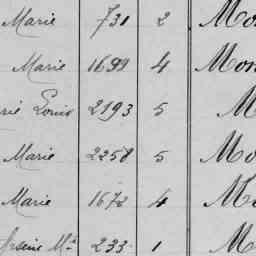 Marie 731 2 Mon
Marie 1699 4 Mon
rie Louis 2193 5 M
Marie 2258 5 Mo
Marie 1672 4 Mo
Arsène Mie 233 1 M